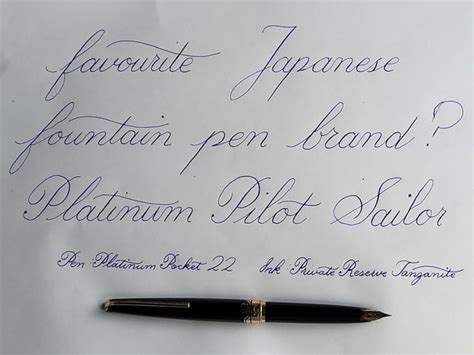 favourite Japanese
fountain pen brand?
Platinum Pilot Sailor
Pen: Platinum Pocket 22 Ink: Private Reserve Tanganite